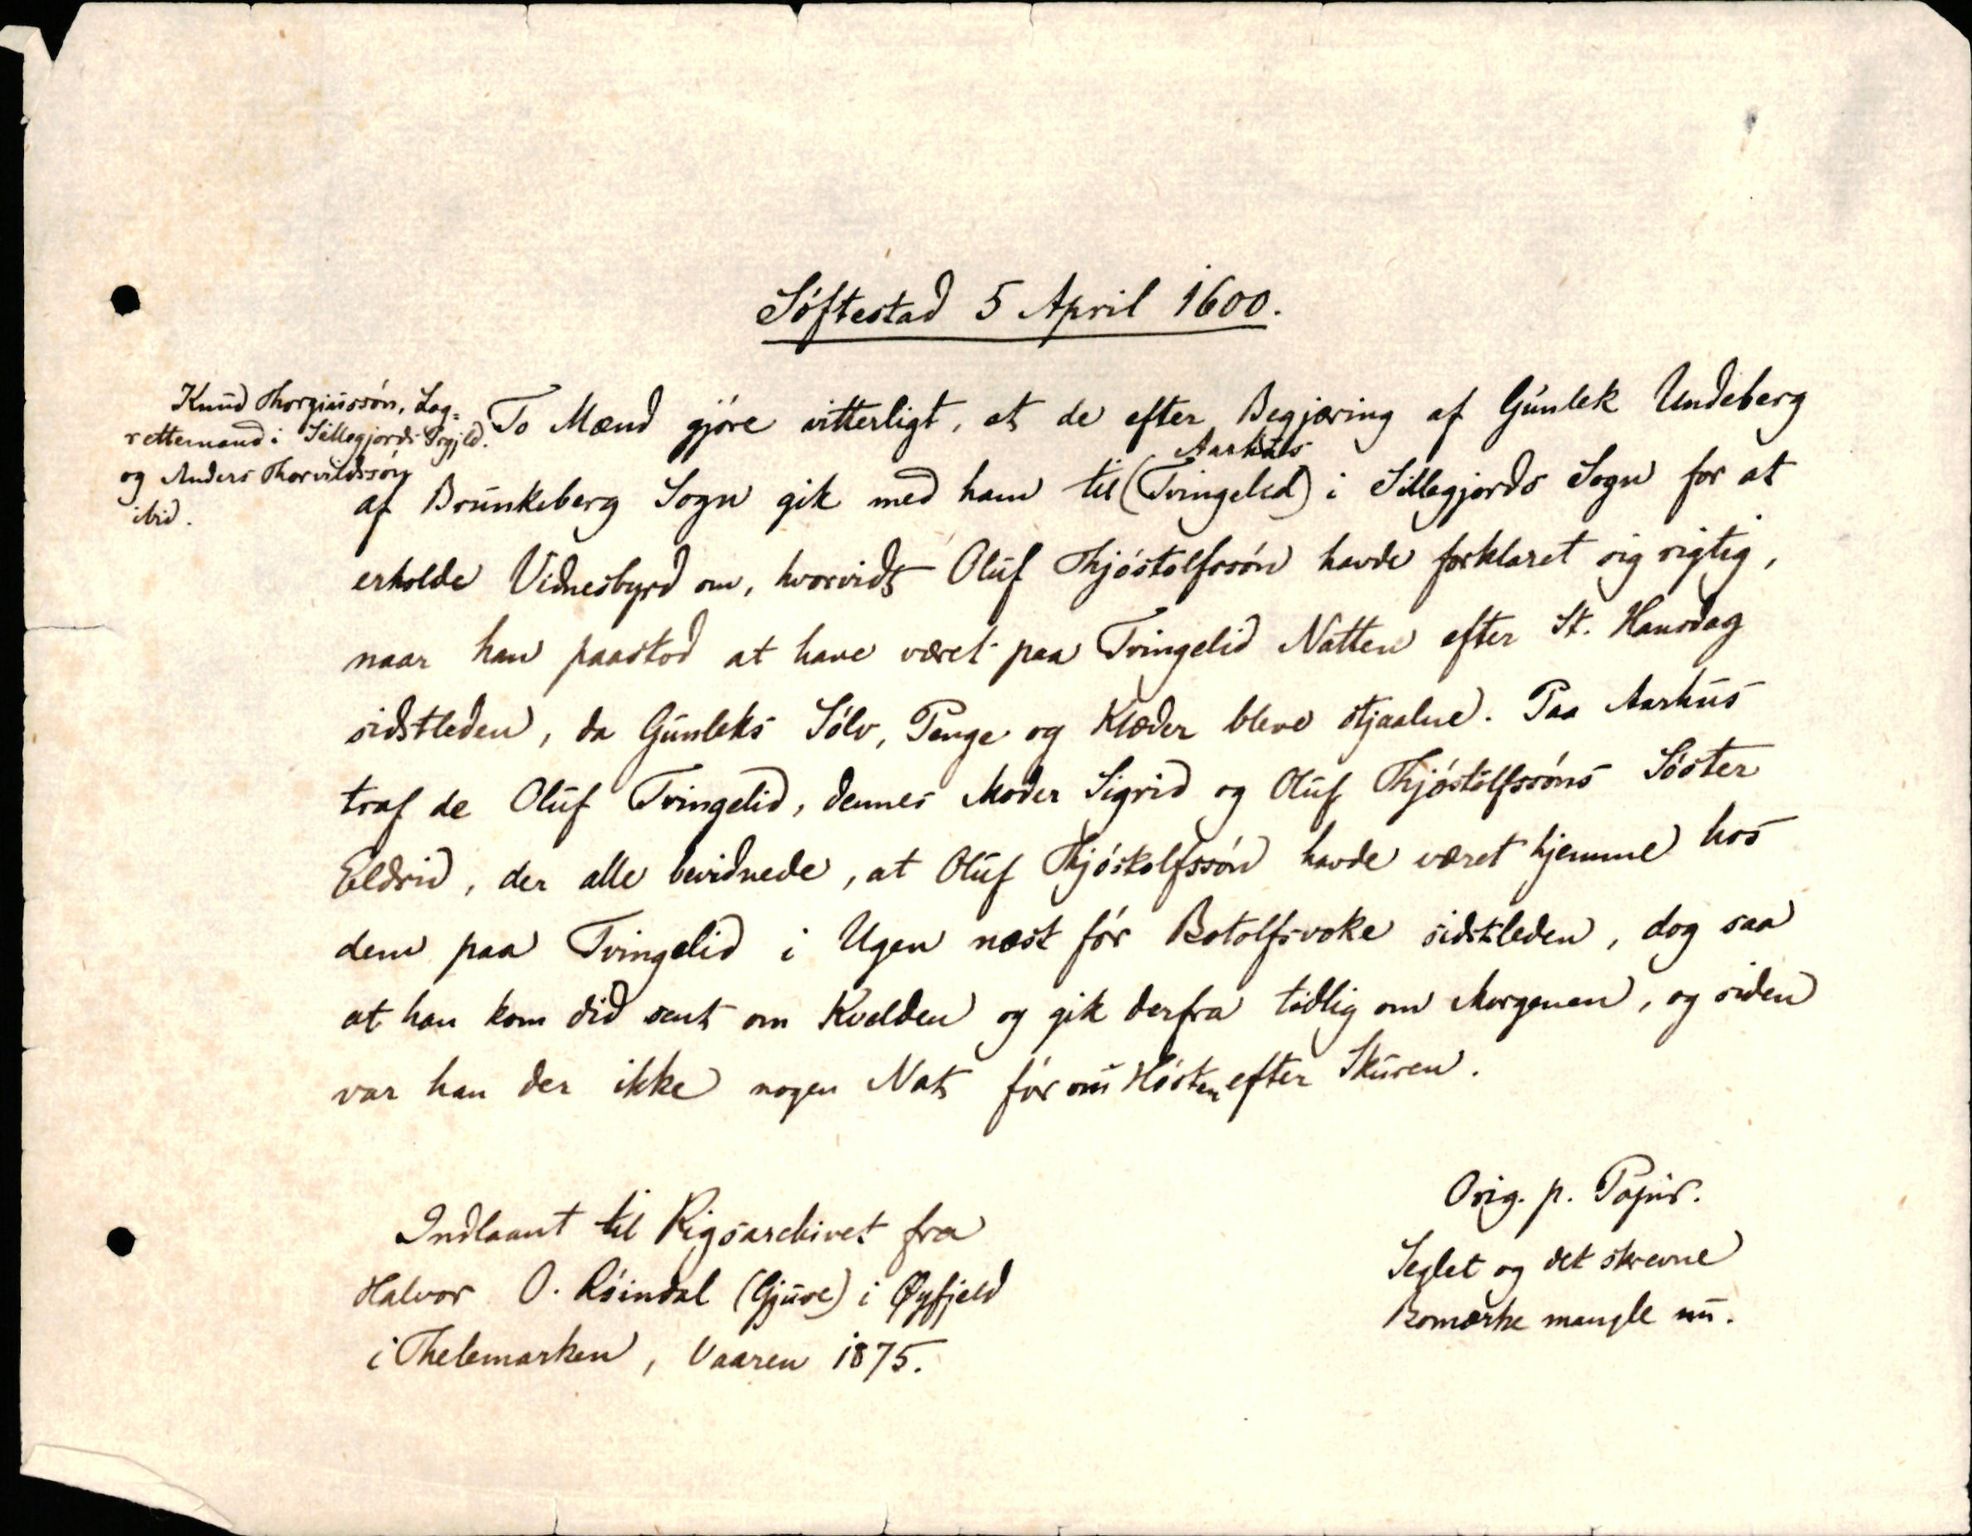 Sóftestad 5 April 1600.
Knud Thorgiussón, Lag-
rettemand i Sillegjords Prgjld.
og Anders Thorvildssón
ibid.
To Mænd gjóre vitterligt, at de efter Begjæring af Gunlek Undeberg
Aarhus
af Brunkeberg Sogn gik med ham til (Tvingelid) i Sillegjords Sogn for at
erholde Vidnesbyrd om, hvorvidt Oluf Thjóstolfssón havde forklaret sig rigtig,
naar han paastod at have været paa Tvingelid Natten efter St. Hansdag
sidstleden, da Gunleks Sólv, Penge og Klæder bleve stjaalne. Paa Aarhus
traf de Oluf Tvingelid, dennes Moder Sigrid og Oluf Thjóstolfssóns Sóster
Eldrid, der alle bevidnede, at Oluf Thjóstolfssón havde været hjemme hos
dem paa Tvingelid i Ugen næst fór Botolfsvoke sidstleden, dog saa
at han kom did sent om Kvelden og gik derfra tidlig om Morgenen, og siden
var han der ikke nogen Nat fór om Hósten efter Skuren.
Indlaant til Rigsarchivet fra
Halvor O. Róindal (Gjuve) i Øyfjeld
i Thelemarken, Vaaren 1875.
Orig. p. Papir.
Seglet og det skrevne
Bomærke mangle nu.